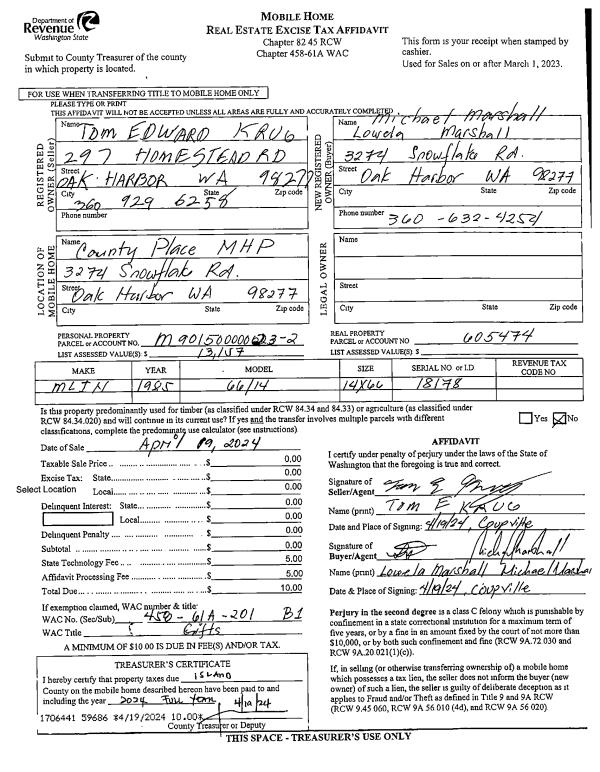 Department of
Revenue
Washington State
MOBILE HOME
REAL ESTATE EXCISE TAX AFFIDAVIT
Chapter 82 45 RCW
Chapter 458-61A WAC
This form is your receipt when stamped by
cashier.
Used for Sales on or after March 1, 2023.
Submit to County Treasurer of the county
in which property is located.
FOR USE WHEN TRANSFERRING TITLE TO MOBILE HOME ONLY
PLEASE TYPE OR PRINT
THIS AFFIDAVIT WILL NOT BE ACCEPTED UNLESS ALL AREAS ARE FULLY AND ACCURATELY COMPLETED
REGISTERED
OWNER (Seller)
Name
TOM EDWARD KRUG
297 HOMESTEAD RD
Street
OAK HARBOR WA 98277
City State Zip code
360 929 6258
Phone number
NEW REGISTERED
OWNER (Buyer)
Michael Marshall
Name
Lowela Marshall
3274 Snowflake Rd.
Street
Oak Harbor WA 98277
City State Zip code
Phone number 360-632-4252
LOCATION OF
MOBILE HOME
Name
County Place MHP
3274 Snowflake Rd.
Street
Oak Harbor WA 98277
City State Zip code
LEGAL OWNER
Name
Street
City State Zip code
PERSONAL PROPERTY
PARCEL or ACCOUNT NO.
LIST ASSESSED VALUE(S) $ 13,157
REAL PROPERTY
PARCEL or ACCOUNT NO 605474
LIST ASSESSED VALUE(S) $
MAKE YEAR MODEL SIZE SERIAL NO or I.D. REVENUE TAX
CODE NO
MLTN 1985 66/14 14X66 18178
Is this property predominantly used for timber (as classified under RCW 84.34 and 84.33) or agriculture (as classified under
RCW 84.34.020) and will continue in its current use? If yes and the transfer involves multiple parcels with different
classifications, complete the predominate use calculator (see instructions)
Yes No
Date of Sale April 19, 2024
Taxable Sale Price $ 0.00
Excise Tax: State $ 0.00
Select Location Local $ 0.00
Delinquent Interest: State $ 0.00
Local $ 0.00
Delinquent Penalty $ 0.00
Subtotal $ 0.00
State Technology Fee $ 5.00
Affidavit Processing Fee $ 5.00
Total Due $ 10.00
If exemption claimed, WAC number & title:
WAC No. (Sec/Sub) 458-61A-201 B1
WAC Title Gifts
A MINIMUM OF $10.00 IS DUE IN FEE(S) AND/OR TAX.
TREASURER'S CERTIFICATE
I hereby certify that property taxes due ISLAND
County on the mobile home described hereon have been paid to and
including the year 2024 FULL YEAR 4/19/24
1706441 59686 *4/19/2024 10.00*
County Treasurer or Deputy
AFFIDAVIT
I certify under penalty of perjury under the laws of the State of
Washington that the foregoing is true and correct.
Signature of
Seller/Agent
Name (print) TOM E KRUG
Date and Place of Signing: 4/19/24, Coupville
Signature of
Buyer/Agent
Name (print) Lowela Marshall Michael Marshal
Date & Place of Signing: 4/19/24, Coupville
Perjury in the second degree is a class C felony which is punishable by
confinement in a state correctional institution for a maximum term of
five years, or by a fine in an amount fixed by the court of not more than
$10,000, or by both such confinement and fine (RCW 9A.72 030 and
RCW 9A.20 021(1)(c)).
If, in selling (or otherwise transferring ownership of) a mobile home
which possesses a tax lien, the seller does not inform the buyer (new
owner) of such a lien, the seller is guilty of deliberate deception as it
applies to Fraud and/or Theft as defined in Title 9 and 9A RCW
(RCW 9.45 060, RCW 9A 56 010 (4d), and RCW 9A 56 020).
THIS SPACE - TREASURER'S USE ONLY